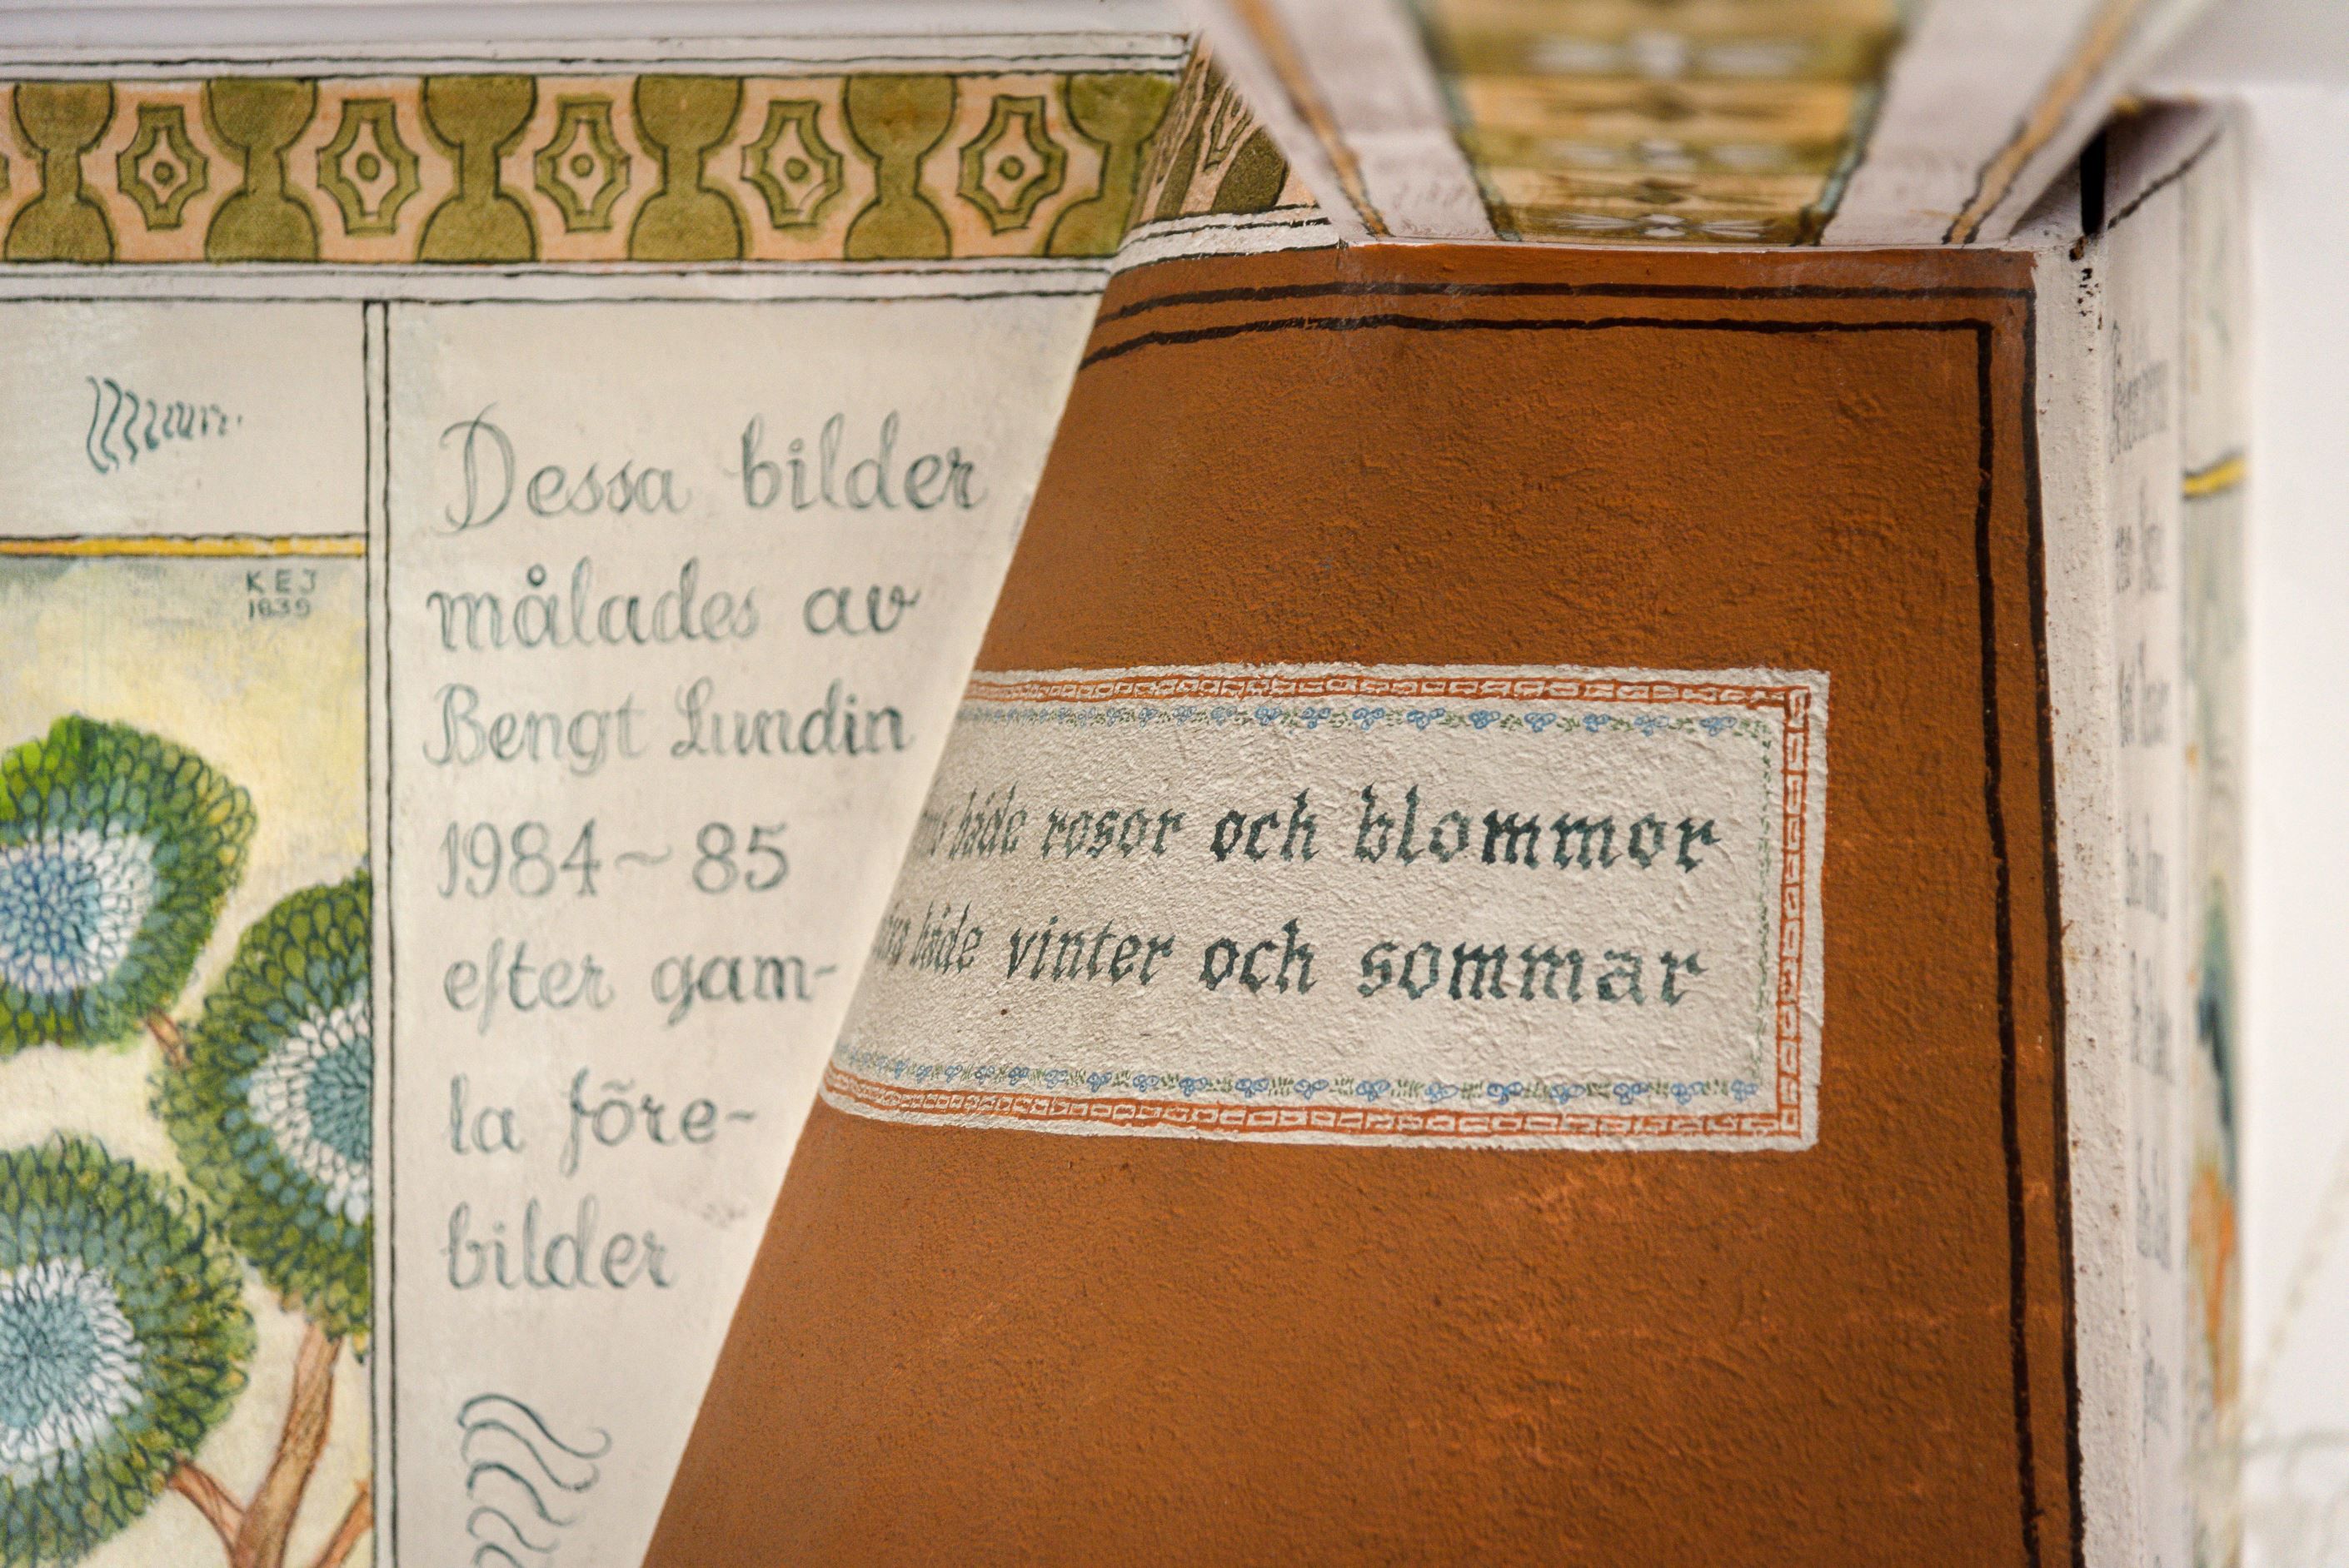 KEJ
1839
Dessa bilder
målades av
Bengt Lundin
1984~85
efter gam-
la före-
bilder
både rosor och blommor
både vinter och sommar